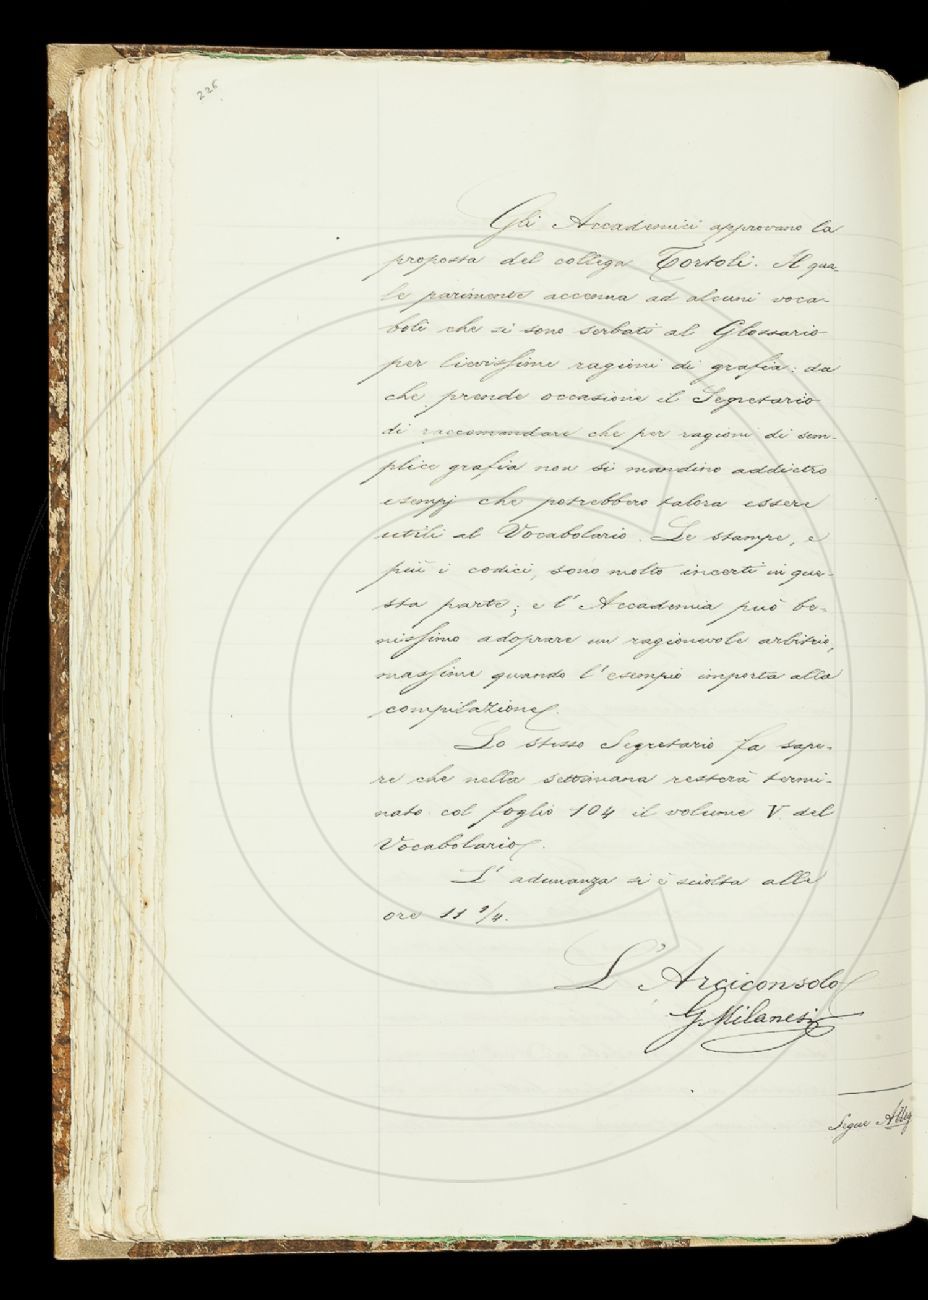 226
Gli Accademici approvano la
proposta del collega Tortoli. Il qua-
le parimente accenna ad alcuni voca-
boli che si sono serbati al Glossario
per lievissime ragioni di grafia: da
che prende occasione il Segretario
di raccomandare che per ragioni di sem-
plice grafia non si mandino addietro
esempj che potrebbero talora essere
utili al Vocabolario. Le stampe, e
più i codici, sono molto incerti in que-
sta parte; e l'Accademia può be-
nissimo adoprare un ragionevole arbitrio,
massime quando l'esempio importa alla
compilazione.
Lo stesso Segretario fa sape-
re che nella settimana resterà termi-
nato col foglio 104 il volume V. del
Vocabolario.
L'adunanza si è sciolta alle
ore 11 1/4.
L'Arciconsolo
G Milanesi
Segue Alleg